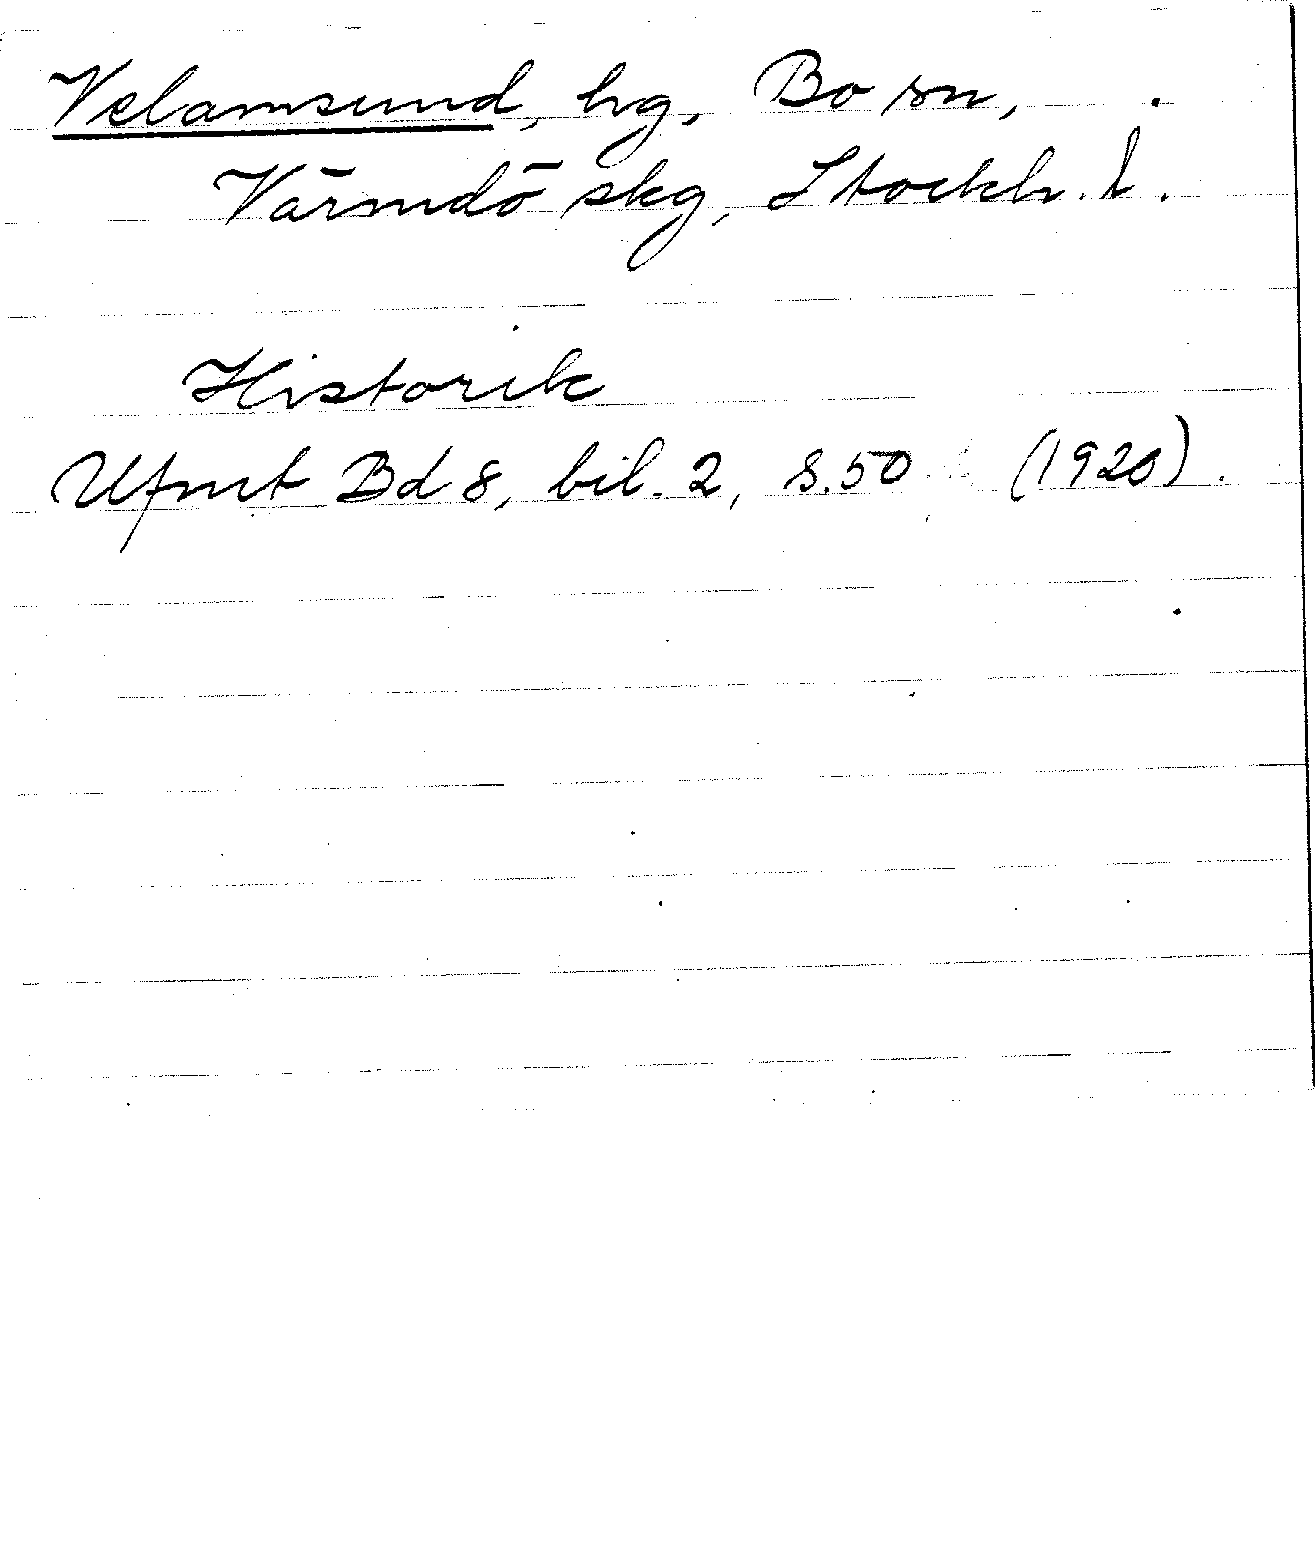 Velamsund, hg, Bo sn,
Värmdö skg, Stockh. l.
Historik
Ufmt Bd 8, bil. 2, s. 50 (1920).